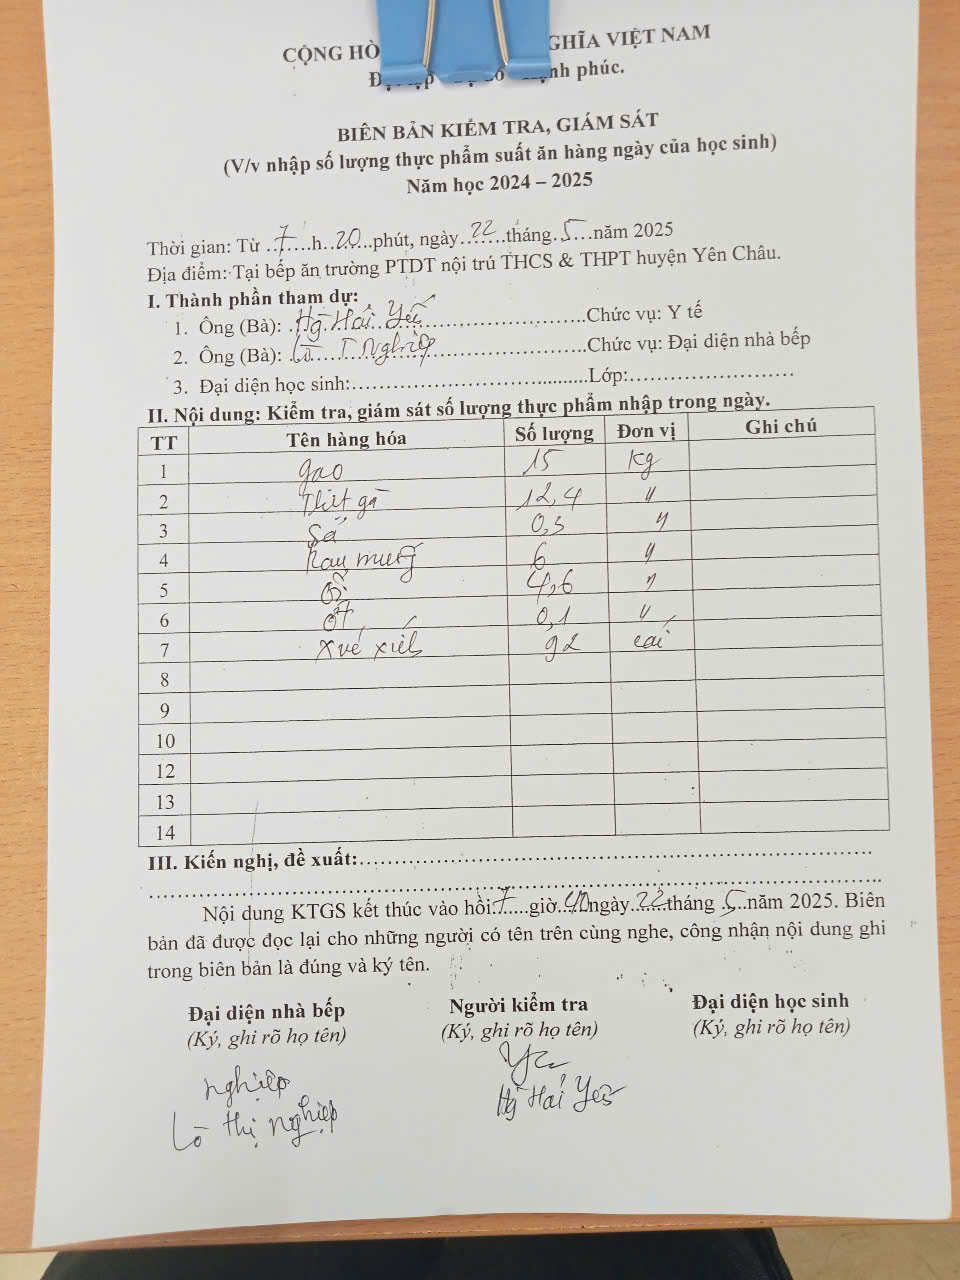 CỘNG HÒ GHĨA VIỆT NAM
BIÊN BẢN KIỂM TRA, GIÁM SÁT
(V/v nhập số lượng thực phẩm suất ăn hàng ngày của học sinh)
Năm học 2024 – 2025
Thời gian: Từ 7 h 20 phút, ngày 22 tháng 5 năm 2025
Địa điểm: Tại bếp ăn trường PTDT nội trú THCS & THPT huyện Yên Châu.
I. Thành phần tham dự:
1. Ông (Bà): Hg Hải Yến Chức vụ: Y tế
2. Ông (Bà): Lò T Nghiệp Chức vụ: Đại diện nhà bếp
3. Đại diện học sinh: Lớp:
II. Nội dung: Kiểm tra, giám sát số lượng thực phẩm nhập trong ngày.
TT Tên hàng hóa Số lượng Đơn vị Ghi chú
1 gạo 15 kg
2 Thịt gà 12,4 "
3 Sả 0,3 "
4 Rau muống 6 "
5 4,6 "
6 ớt 0,1 "
7 xiết 92 cái
8
9
10
12
13
14
III. Kiến nghị, đề xuất:
Nội dung KTGS kết thúc vào hồi 7 giờ 40 ngày 22 tháng 5 năm 2025. Biên
bản đã được đọc lại cho những người có tên trên cùng nghe, công nhận nội dung ghi
trong biên bản là đúng và ký tên.
Đại diện nhà bếp Người kiểm tra Đại diện học sinh
(Ký, ghi rõ họ tên) (Ký, ghi rõ họ tên) (Ký, ghi rõ họ tên)
Nghiệp
Lò thị nghiệp Hg Hải Yến